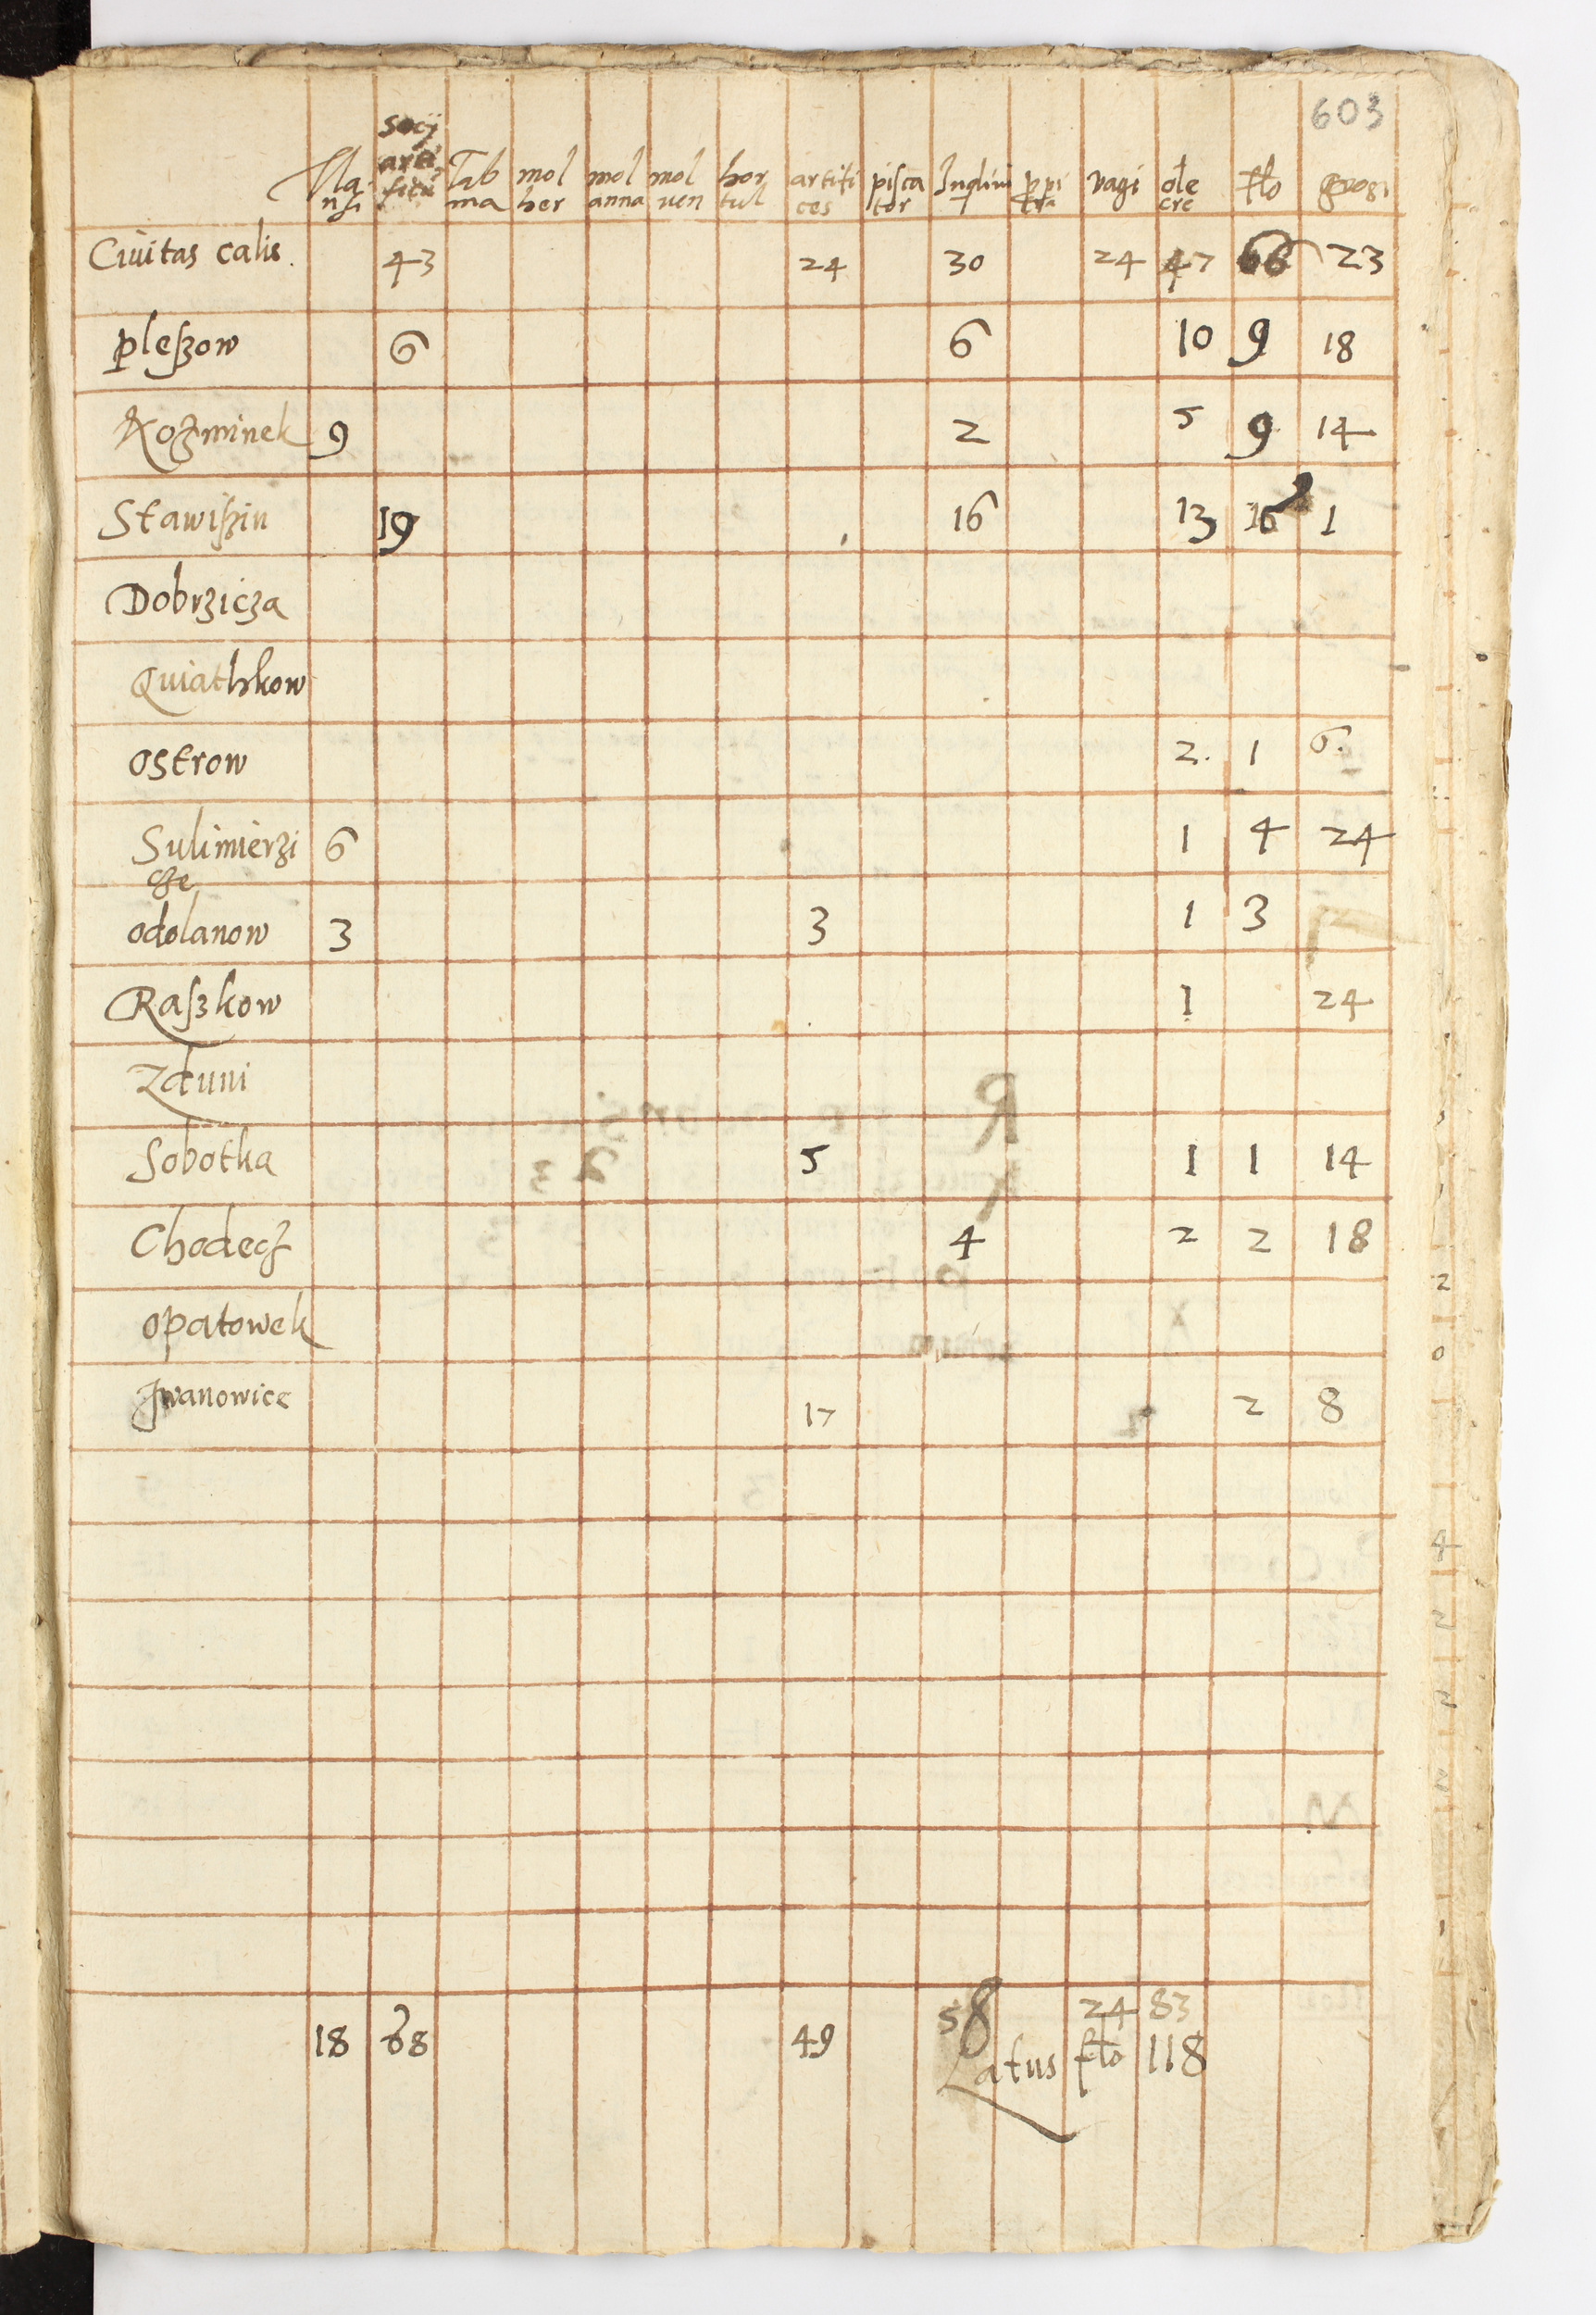 603
Mansi socij artificū Tabma mol her mol anna mol ven hortul artifices piscator Inqlini ppi vagi olecre flo grosi
Ciuitas calis. 43 24 30 24 47 66 23
pleszow 6 6 10 9 18
Kozminek 9 2 5 9 14
Stawiszin 19 16 13 16 1
Dobrzicza
Quiathkow
Ostrow 2. 1 6.
Sulimierzi 6 1 4 24
cze
odolanow 3 3 1 3
Raszkow 1 24
Zduni
Sobotka 5 1 1 14
Chodecz 4 2 2 18
opatowek
Jwanowice 17 2 8
18 68 49 58 24 83
Latus flo 118